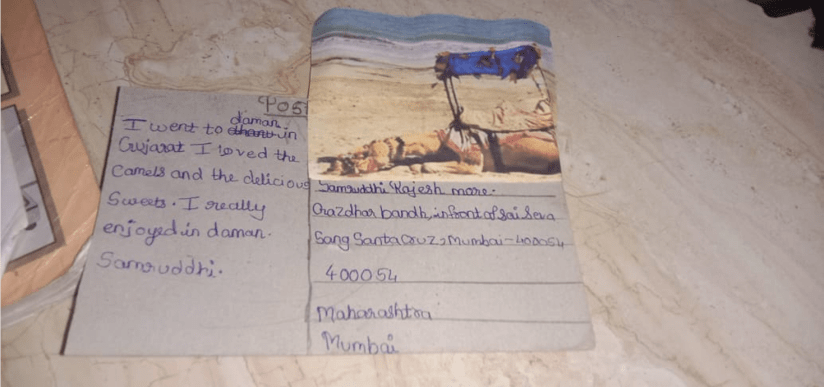 POST
I went to daman in
Gujarat I loved the
Camels and the delicious
Sweets. I really
enjoyed in daman.
Samruddhi.
Samruddhi Rajesh more.
Gazdhar bandh, infront of Sai Seva
Sang Santa Cruz, Mumbai - 400054
400054
Maharashtra
Mumbai